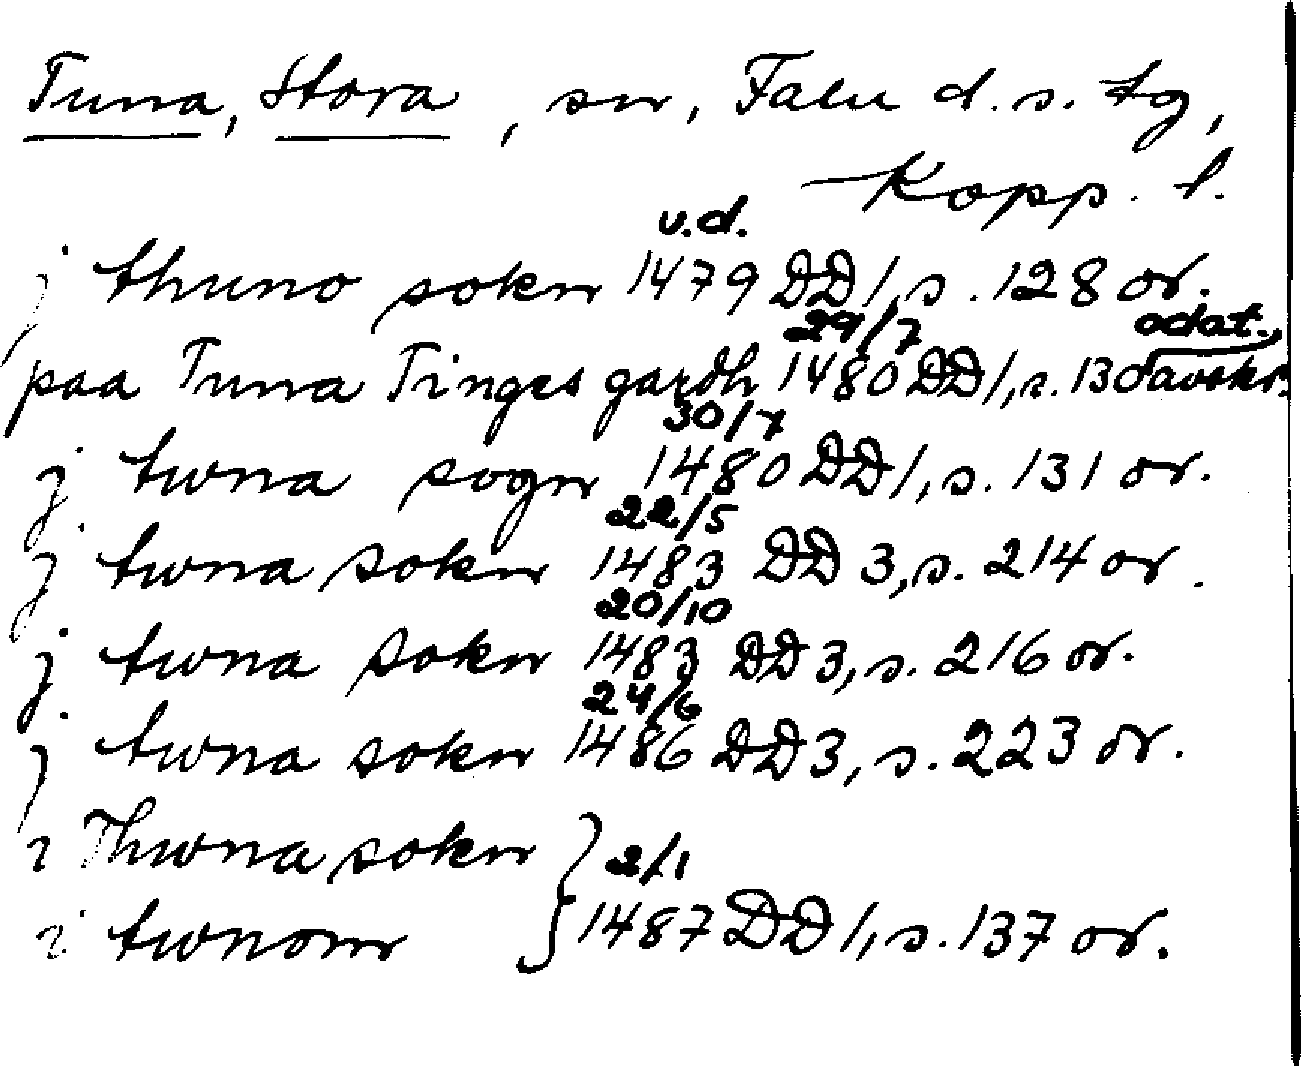 Tuna, Stora, sn, Falu d.s. tg,
Kopp. l.
u.d.
j thuno sokn 1479 DD 1, s. 128 or.
29/7 odat.
paa Tuna Tinges gardh 1480 DD 1, s. 130 avskr.
30/7
j twna sogn 1480 DD 1, s. 131 or.
22/5
j twna sokn 1483 DD 3, s. 214 or.
20/10
j twna sokn 1483 DD 3, s. 216 or.
24/6
j twna sokn 1486 DD 3, s. 223 or.
i Thwna sokn } 2/1
i twnom } 1487 DD 1, s. 137 or.